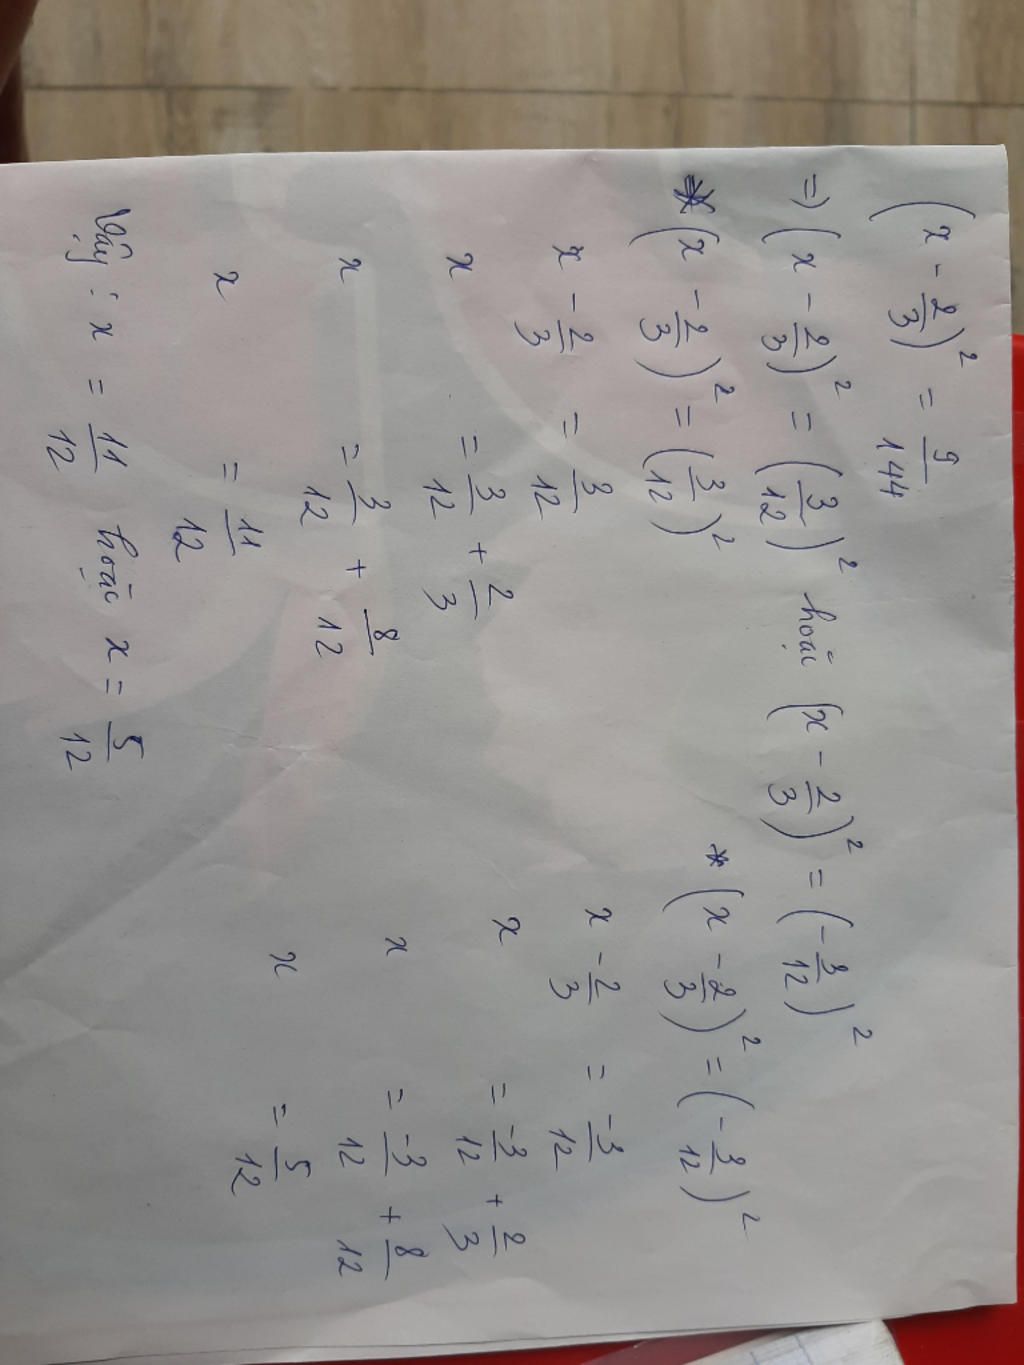 (x - 2/3)² = 9/144
=> (x - 2/3)² = (3/12)² hoặc (x - 2/3)² = (-3/12)²
* (x - 2/3)² = (3/12)²
x - 2/3 = 3/12
x = 3/12 + 2/3
x = 3/12 + 8/12
x = 11/12
* (x - 2/3)² = (-3/12)²
x - 2/3 = -3/12
x = -3/12 + 2/3
x = -3/12 + 8/12
x = 5/12
Vậy : x = 11/12 hoặc x = 5/12